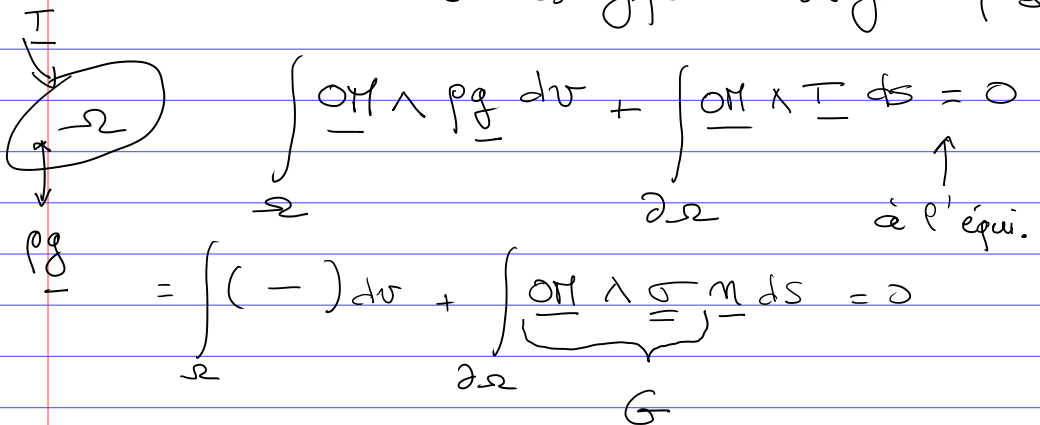 T
Ω
∫_Ω OM ∧ ρg dv + ∫_∂Ω OM ∧ T ds = 0
à l'équi.
ρg
= ∫_Ω ( — ) dv + ∫_∂Ω OM ∧ σ n ds = 0
G